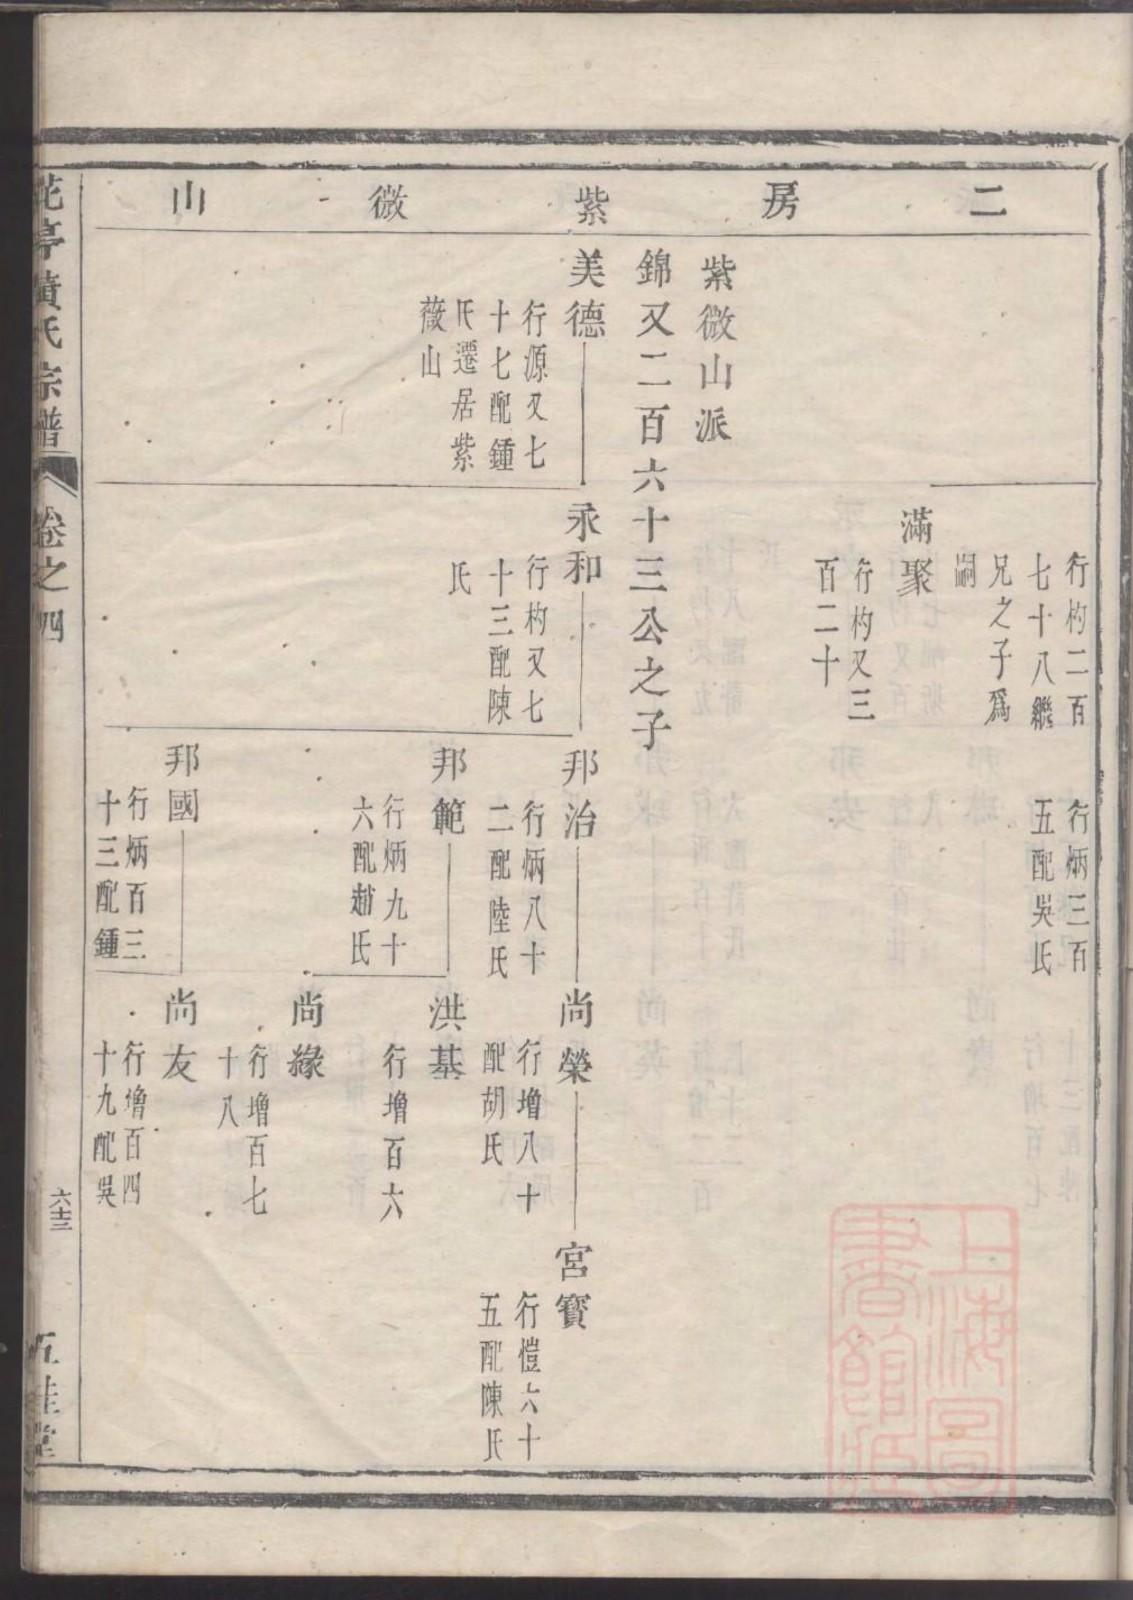 二房紫微山
行杓二百
七十八繼
兄之子爲
嗣
行炳三百
五配吳氏
滿聚
行杓又三
百二十
紫微山派
錦又二百六十三公之子
美德
行源又七
十七配鍾
氏遷居紫
薇山
永和
行杓又七
十三配陳
氏
邦治
行炳八十
二配陸氏
尚榮
行增八十
配胡氏
宮寶
行愷六十
五配陳氏
邦範
行炳九十
六配趙氏
洪基
行增百六
尚緣
行增百七
十八
邦國
行炳百三
十三配鍾
尚友
行增百四
十九配吳
花亭黃氏宗譜 卷之四 六十三 五桂堂
上海圖
書館藏